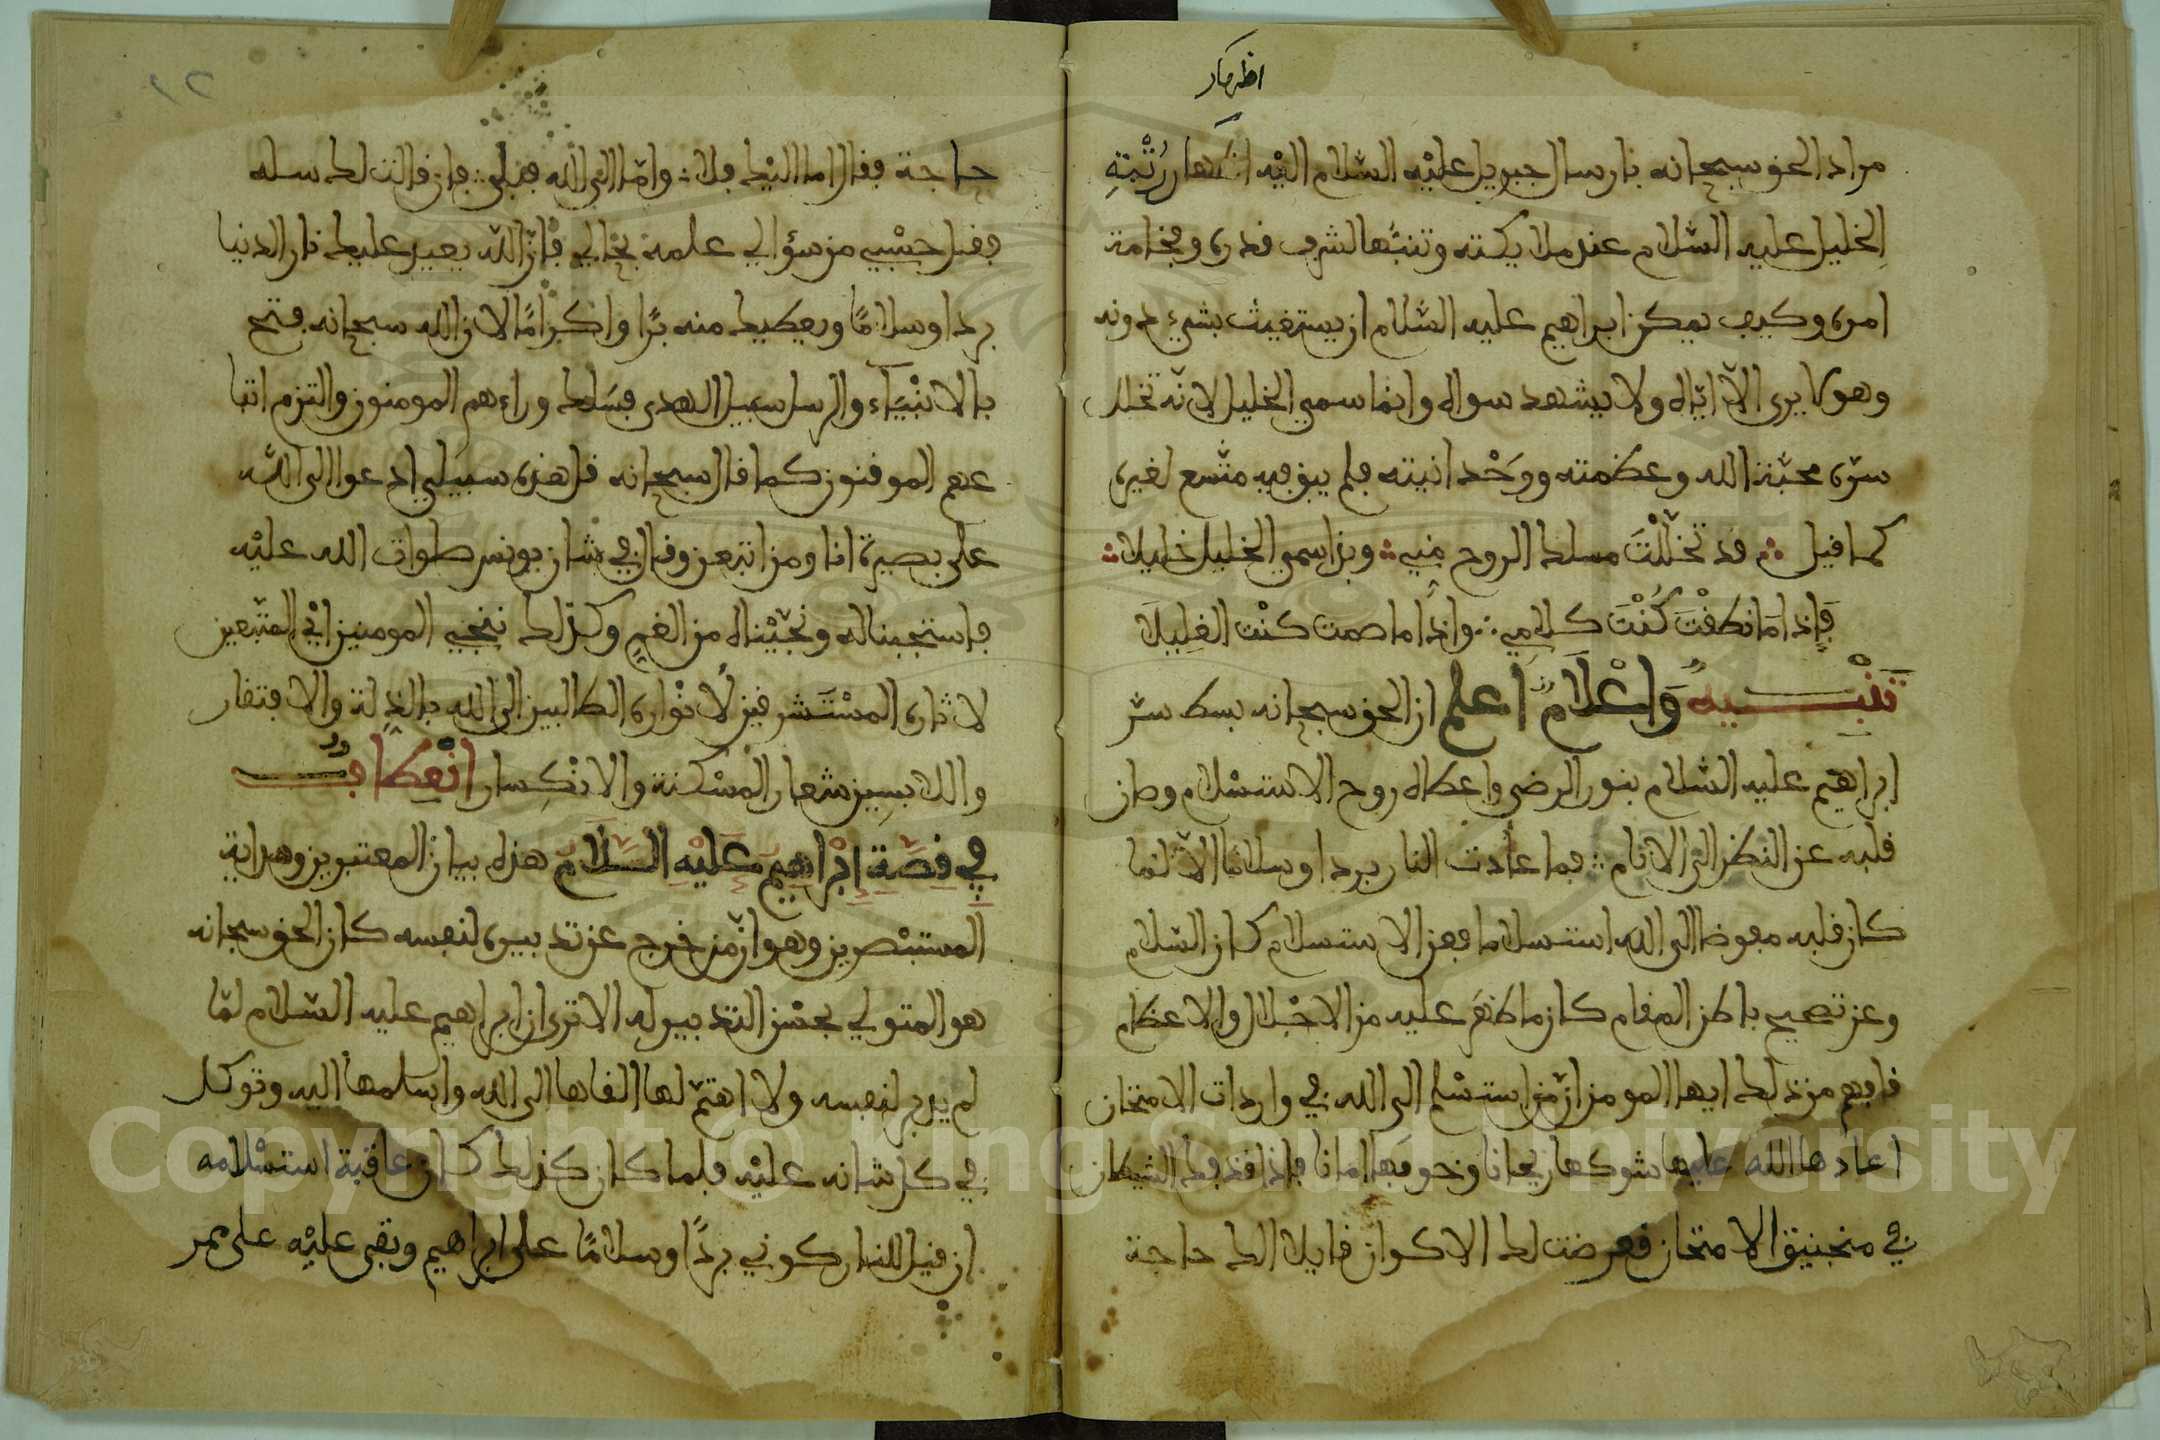 اظهار
مراد الحق سبحانه بارسال جبريل عليه السلام اليه اظهار رتبة
الخليل عليه السلام عند ملايكته وتنبيها لشرف قدره وفخامة
امره وكيف يمكن ابراهيم عليه السلام ان يستغيث بشيء دونه
وهو لا يرى الا اياه ولا يشهد سواه وانما سمي الخليل لانه تخلل
سره محبة الله وعظمته ووحدانيته فلم يبق فيه متسع لغيره
كما قيل قد تخللت مسلك الروح مني وبذا سمي الخليل خليلا
فإذا ما نطقت كنت كلامي واذا ما صمت كنت الغليلا
تنبيه وإعلام اعلم ان الحق سبحانه بسط سر
ابراهيم عليه السلام بنور الرضى واعطاه روح الاستسلام وصان
قلبه عن النظر الى الانام فما عادت النار بردا وسلاما الا لما
كان قلبه مفوضا الى الله استسلاما فعن الاستسلام كان السلام
وعن تصحيح باطن المقام كان ما ظهر عليه من الاجلال والاعظام
فافهم من ذلك ايها المومن ان من استسلم الى الله في واردات الامتحان
اعادها الله عليه شوكها ريحانا وخوفها امانا فإذا قذفك الشيطان
في منجنيق الامتحان فعرضت لك الاكوان قايلة الك حاجة
١٢
حاجة فقل اما اليك فلا واما الى الله فبلى فإن قالت لك سله
فقل حسبي من سؤالي علمه بحالي فإن الله يعيد عليك نار الدنيا
بردا وسلاما ويعطيك منه برا واكراما لان الله سبحانه فتح
بالانبياء والرسل سبيل الهدى فسلك وراءهم المومنون والتزم اتبا
عهم الموقنون كما قال سبحانه قل هذه سبيلي ادعوا الى الله
على بصيرة انا ومن اتبعن وقال في شان يونس صلوات الله عليه
فاستجبنا له ونجيناه من الغم وكذلك ننجي المومنين اي المتبعين
لاثاره المستشرفين لانواره الطالبين الى الله بالذلة والافتقار
واللابسين شعار المسكنة والانكسار انعطاف
في قصة إبراهيم عليه السلام هذه بيان المعتبرين وهداية
المستبصرين وهو ان من خرج عن تدبيره لنفسه كان الحق سبحانه
هو المتولي بحسن التدبير له الا ترى ان ابراهيم عليه السلام لما
لم يدبر لنفسه ولا اهتم لها القاها الى الله واسلمها اليه وتوكل
في كل شانه عليه فلما كان كذلك كان عاقبة استسلامه
ان قيل للنار كوني بردا وسلاما على ابراهيم وبقى عليه على ممر